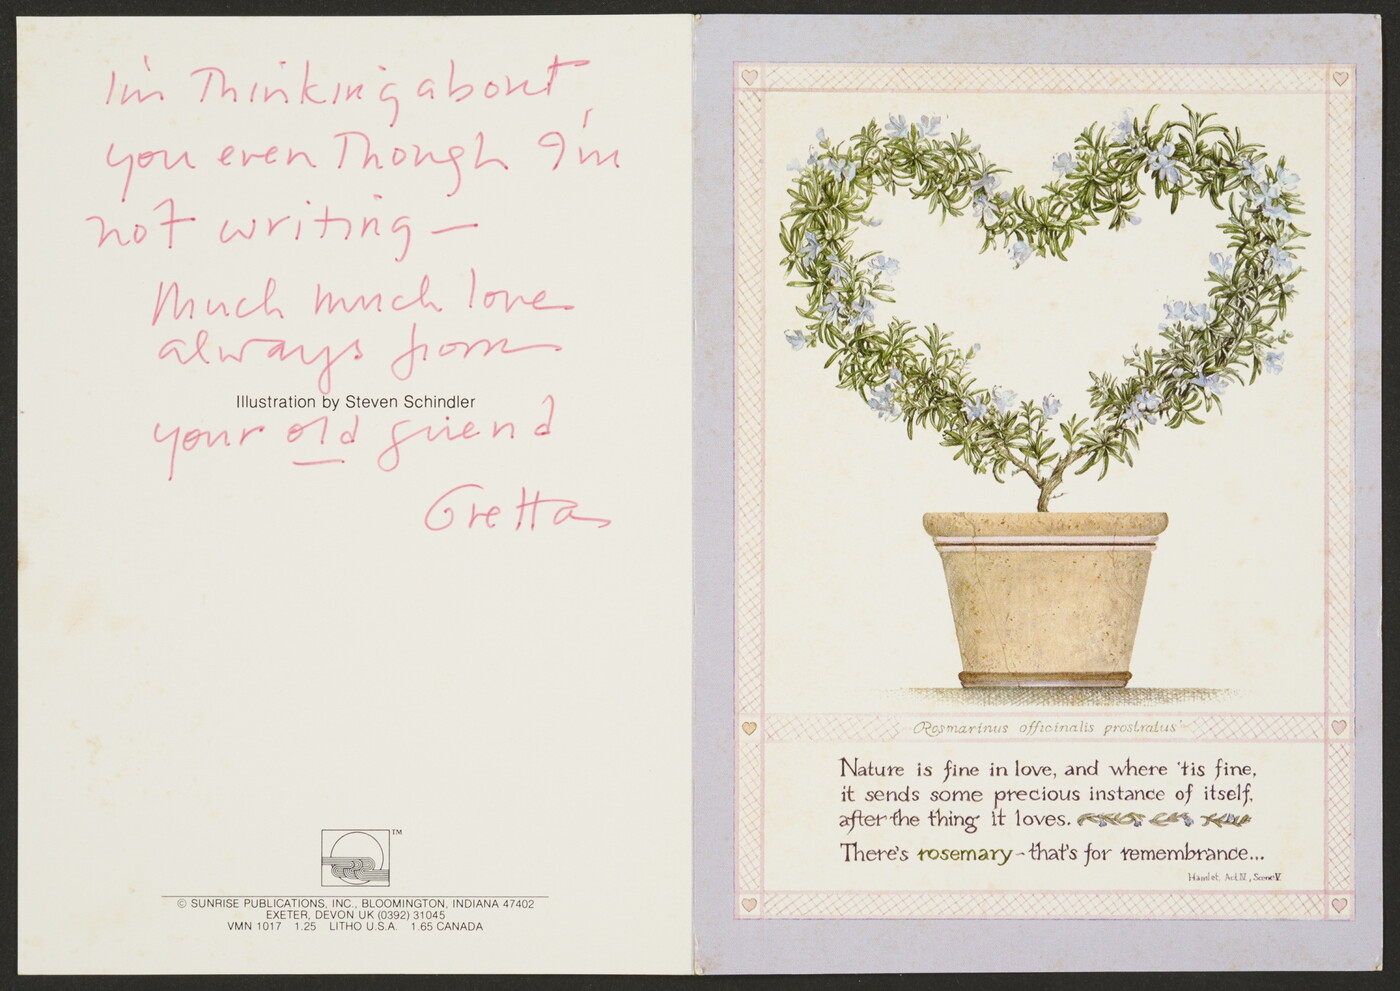 I'm Thinking about
you even Though I'm
not writing —
Much much love
always from
Illustration by Steven Schindler
your old friend
Gretta
TM
© SUNRISE PUBLICATIONS, INC., BLOOMINGTON, INDIANA 47402
EXETER, DEVON UK (0392) 31045
VMN 1017 1.25 LITHO U.S.A. 1.65 CANADA
Rosmarinus officinalis prostratus
Nature is fine in love, and where 'tis fine,
it sends some precious instance of itself,
after the thing it loves.
There's rosemary - that's for remembrance...
Hamlet, Act IV, Scene V